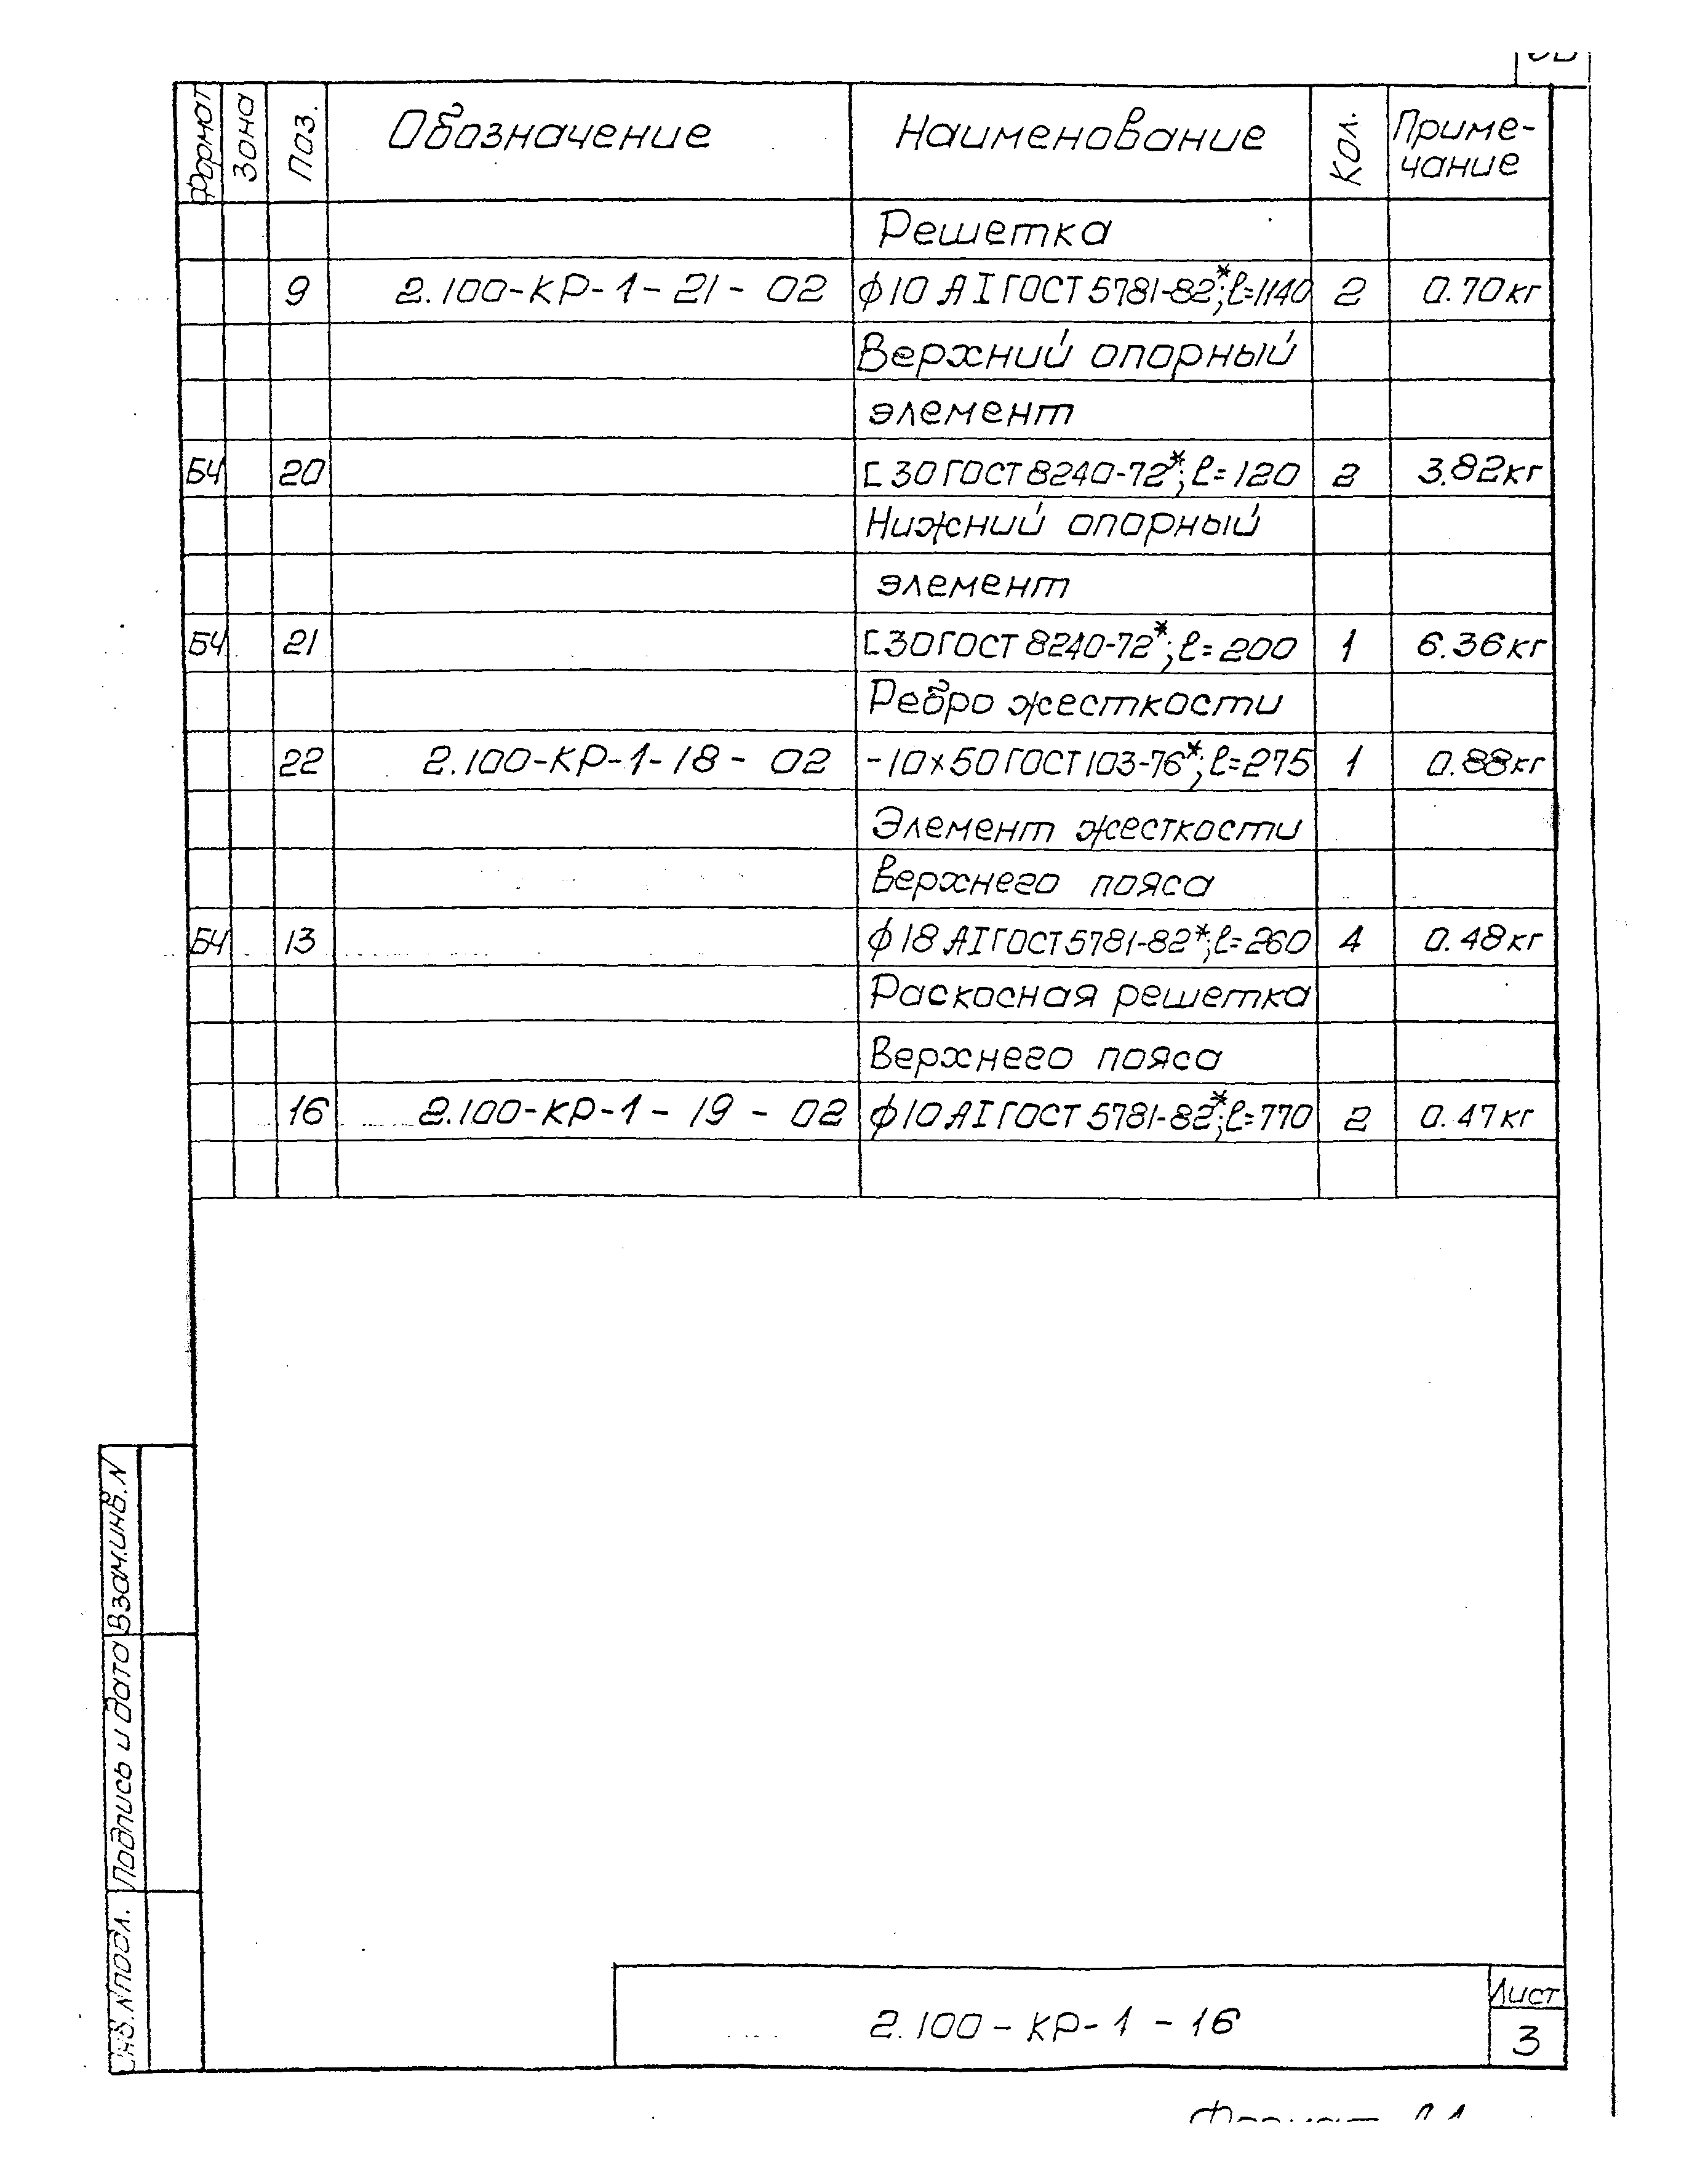 Формат Зона Поз. Обозначение Наименование Кол. Приме-
чание
Решетка
9 2.100-КР-1-21-02 ϕ10 АI ГОСТ 5781-82*; ℓ=1140 2 0.70кг
Верхний опорный
элемент
БЧ 20 [30 ГОСТ 8240-72*; ℓ=120 2 3.82кг
Нижний опорный
элемент
БЧ 21 [30 ГОСТ 8240-72*; ℓ=200 1 6.36кг
Ребро жесткости
22 2.100-КР-1-18-02 -10×50 ГОСТ 103-76*; ℓ=275 1 0.88кг
Элемент жесткости
верхнего пояса
БЧ 13 ϕ18 АI ГОСТ 5781-82*; ℓ=260 4 0.48кг
Раскосная решетка
верхнего пояса
16 2.100-КР-1-19-02 ϕ10 АI ГОСТ 5781-82*; ℓ=770 2 0.47кг
Взам.инв.N
Подпись и дата
Инв.Nподл.
2.100-КР-1-16
Лист
3